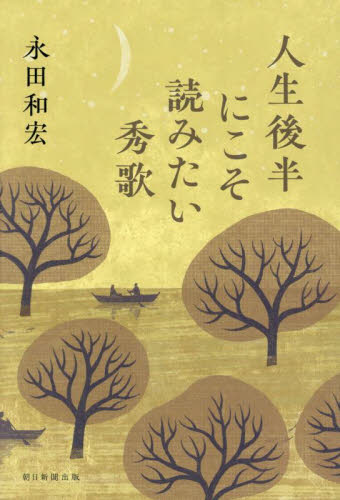 人生後半
にこそ
読みたい
秀歌
永田和宏
朝日新聞出版